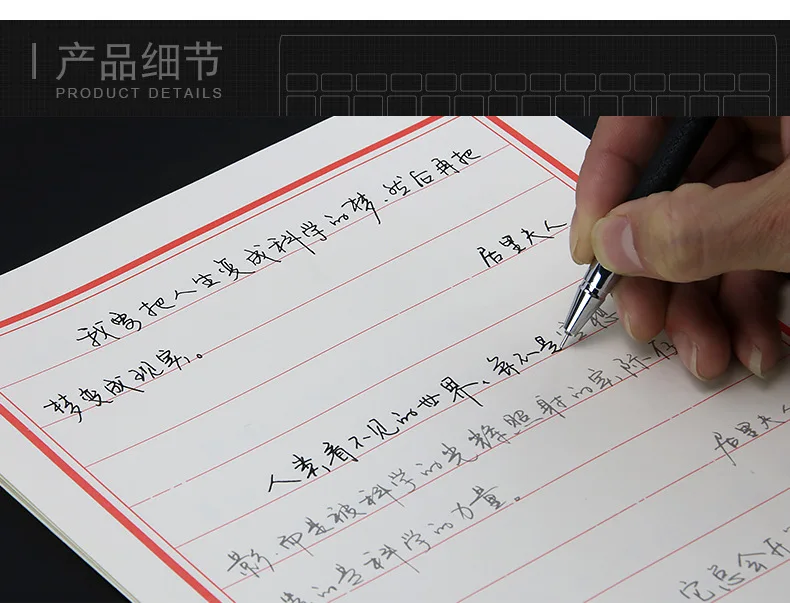 产品细节
PRODUCT DETAILS
我要把人生变成科学的梦,然后再把
居里夫人
梦变成现实。
人类看不见的世界,并不是空想
影,而是被科学的光辉照射的实际存
居里夫人
的是科学的力量。
它总会开